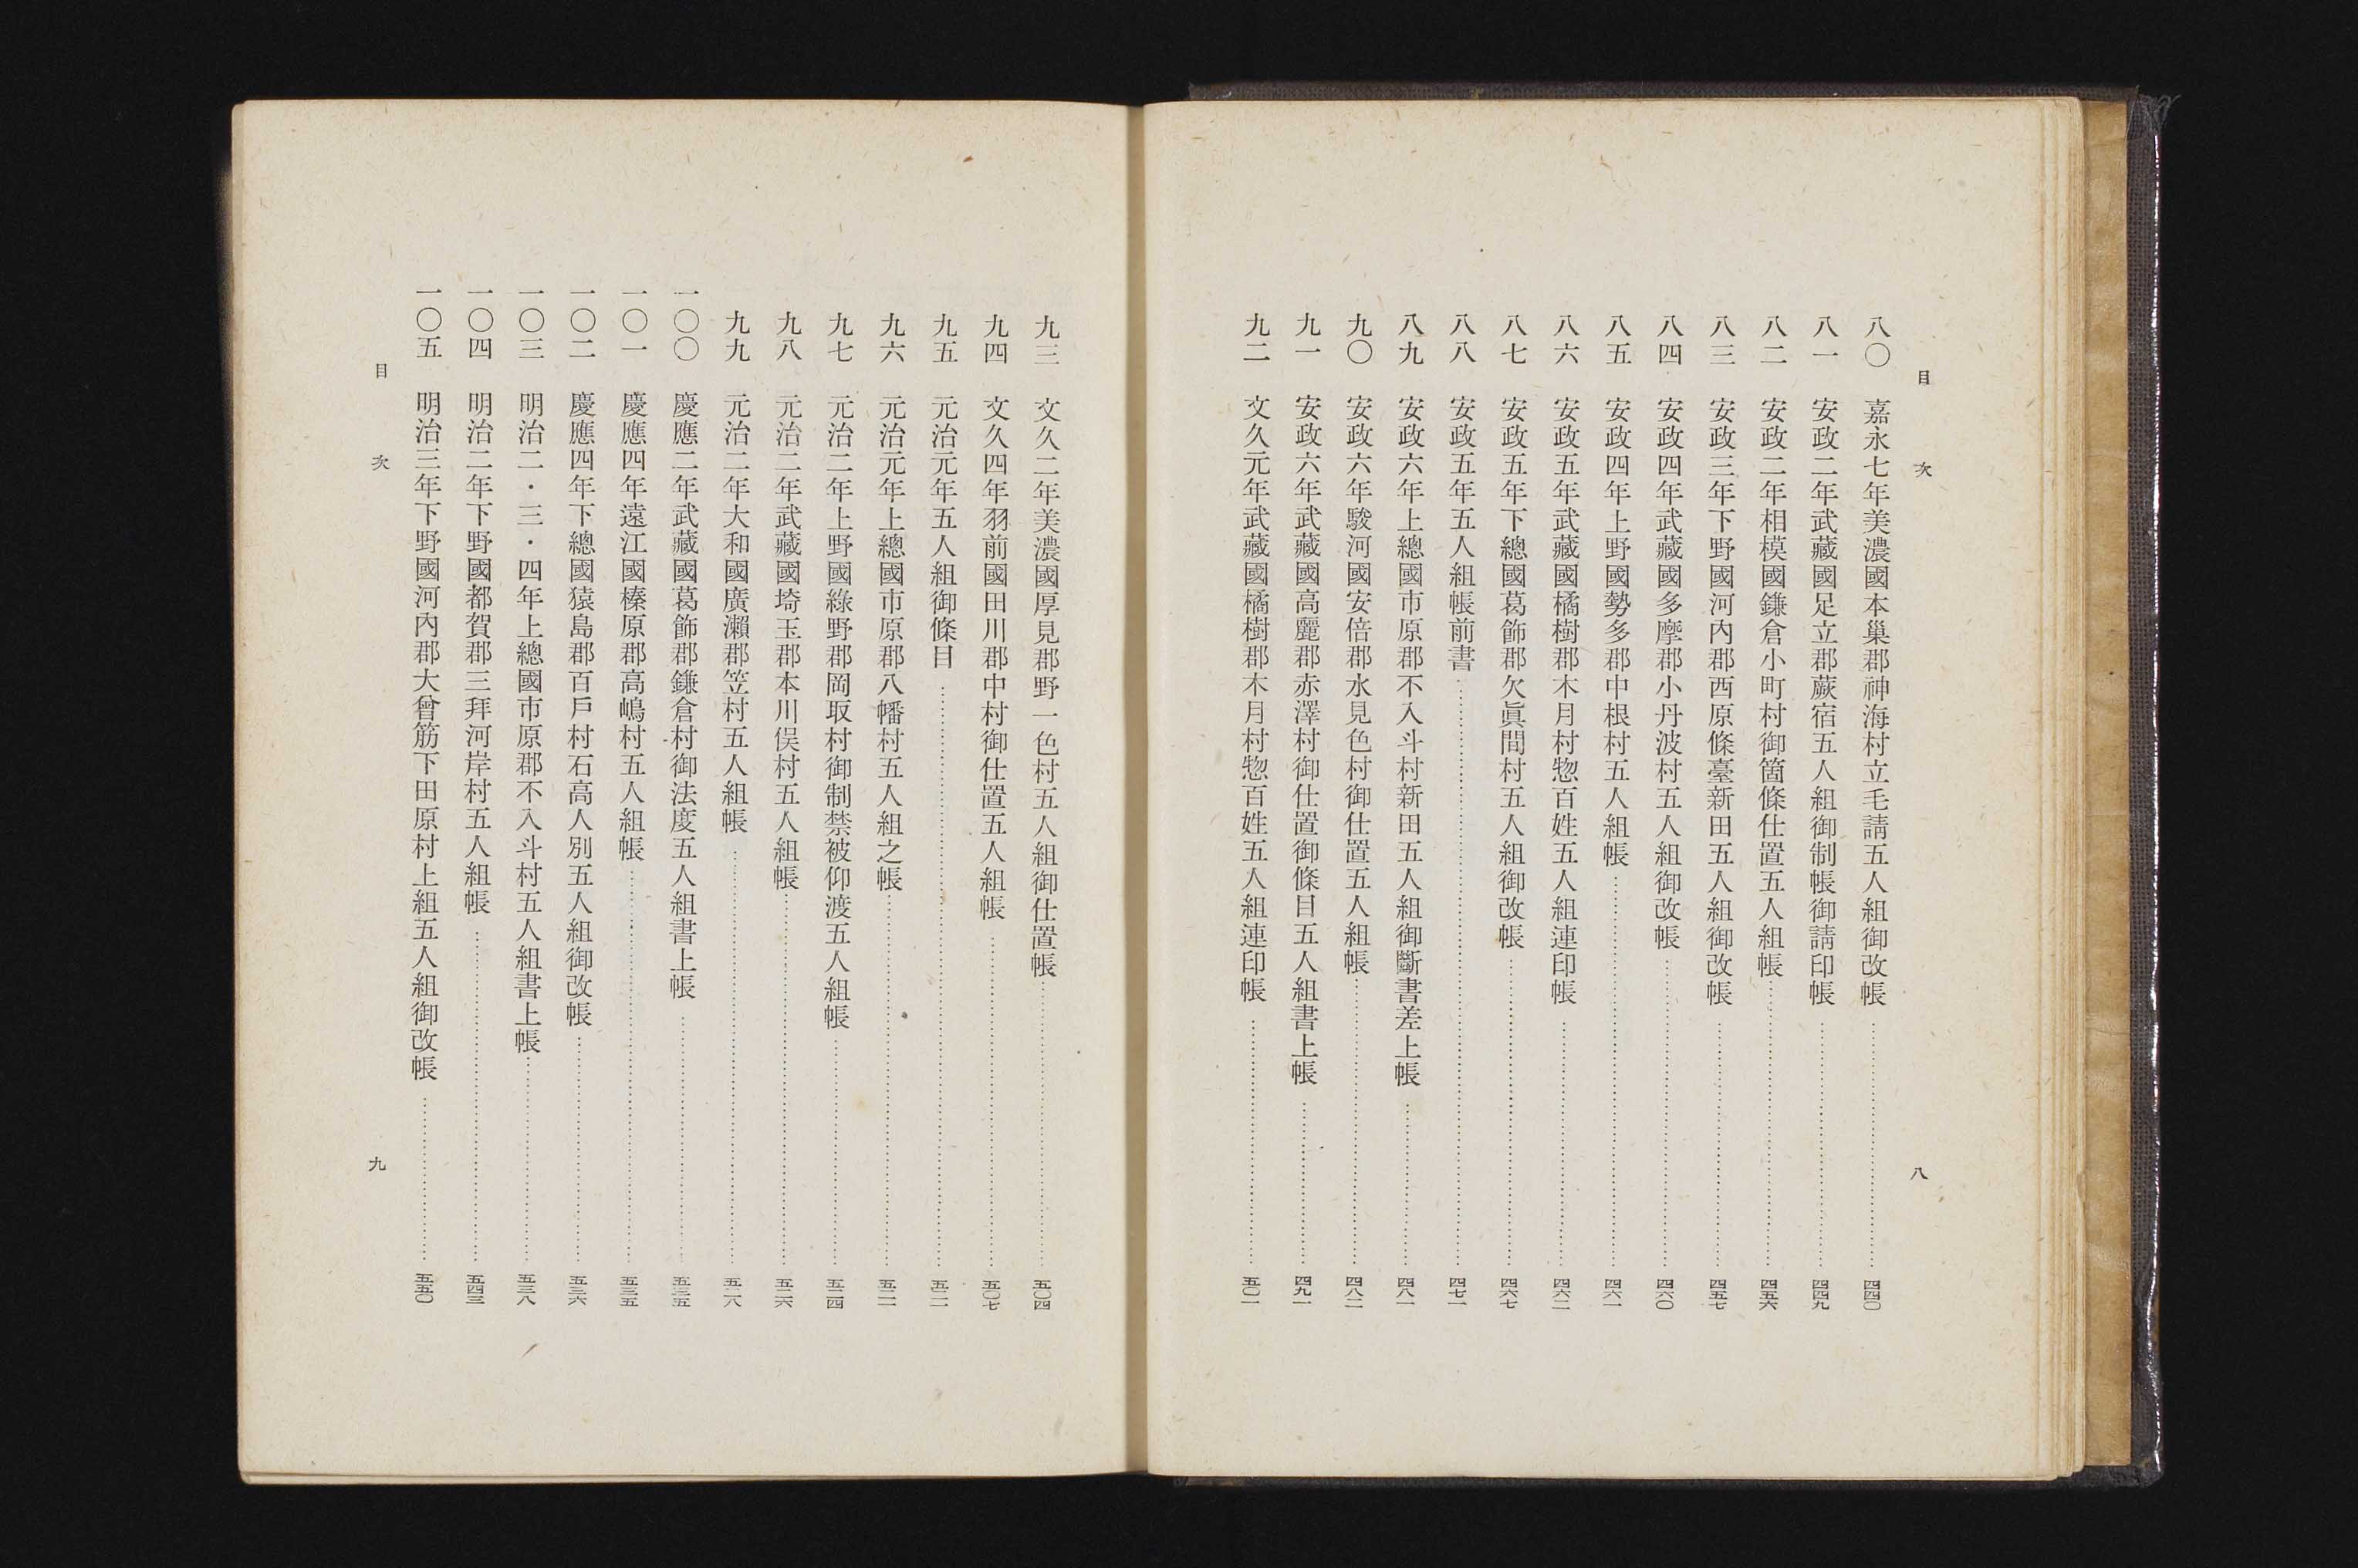 目次
八
八〇 嘉永七年美濃國本巢郡神海村立毛請五人組御改帳 四四〇
八一 安政二年武藏國足立郡蕨宿五人組御制帳御請印帳 四四九
八二 安政二年相模國鎌倉小町村御箇條仕置五人組帳 四五六
八三 安政三年下野國河內郡西原條臺新田五人組御改帳 四五七
八四 安政四年武藏國多摩郡小丹波村五人組御改帳 四六〇
八五 安政四年上野國勢多郡中根村五人組帳 四六一
八六 安政五年武藏國橘樹郡木月村惣百姓五人組連印帳 四六二
八七 安政五年下總國葛飾郡欠眞間村五人組御改帳 四六七
八八 安政五年五人組帳前書 四七一
八九 安政六年上總國市原郡不入斗村新田五人組御斷書差上帳 四八一
九〇 安政六年駿河國安倍郡水見色村御仕置五人組帳 四八二
九一 安政六年武藏國高麗郡赤澤村御仕置御條目五人組書上帳 四九一
九二 文久元年武藏國橘樹郡木月村惣百姓五人組連印帳 五〇一
九三 文久二年美濃國厚見郡野一色村五人組御仕置帳 五〇四
九四 文久四年羽前國田川郡中村御仕置五人組帳 五〇七
九五 元治元年五人組御條目
九六 元治元年上總國市原郡八幡村五人組之帳
九七 元治二年上野國綠野郡岡取村御制禁被仰渡五人組帳 五二四
九八 元治二年武藏國埼玉郡本川俣村五人組帳 五二六
九九 元治二年大和國廣瀨郡笠村五人組帳 五二八
一〇〇 慶應二年武藏國葛飾郡鎌倉村御法度五人組書上帳
一〇一 慶應四年遠江國榛原郡高嶋村五人組帳 五三五
一〇二 慶應四年下總國猿島郡百戶村石高人別五人組御改帳 五三六
一〇三 明治二・三・四年上總國市原郡不入斗村五人組書上帳 五三八
一〇四 明治二年下野國都賀郡三拜河岸村五人組帳 五四三
一〇五 明治三年下野國河內郡大曾筋下田原村上組五人組御改帳 五五〇
目次
九